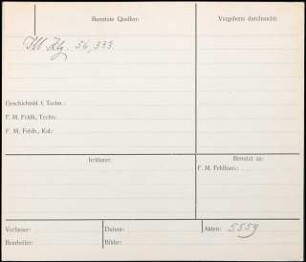 Benutzte Quellen:
Vorgehens durchsucht:
Ill. Ztg. 56, 333.
Geschichtsbl. f. Techn.:
F. M. Feldh., Techn.:
F. M. Feldh., Kal.:
Irrtümer:
Benutzt in:
F. M. Feldhaus:
Verfasser:
Datum:
Akten: 5559
Bearbeiter:
Bilder: